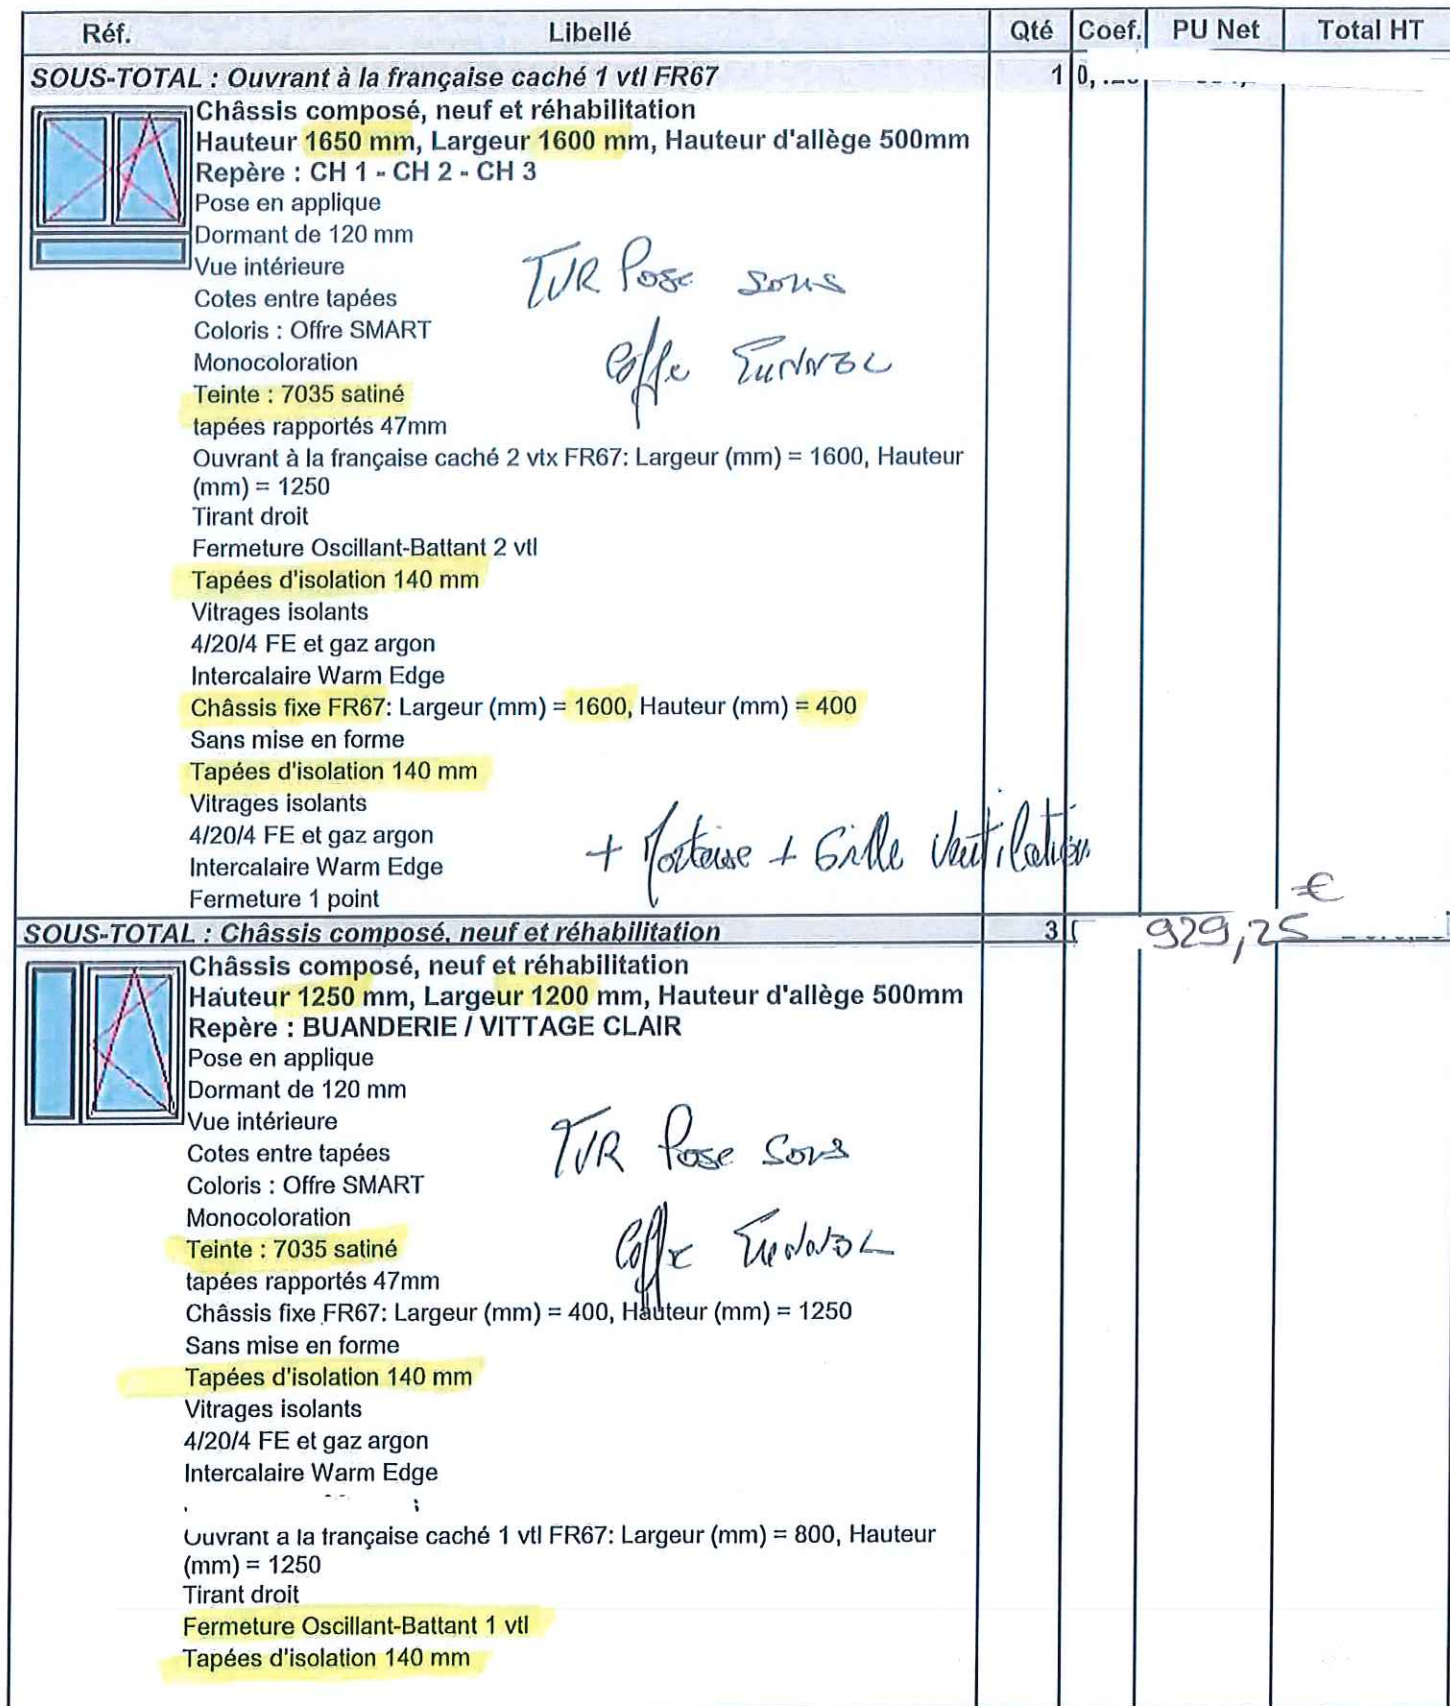 Réf. Libellé Qté Coef. PU Net Total HT
SOUS-TOTAL : Ouvrant à la française caché 1 vtl FR67 1 0,
Châssis composé, neuf et réhabilitation
Hauteur 1650 mm, Largeur 1600 mm, Hauteur d'allège 500mm
Repère : CH 1 - CH 2 - CH 3
Pose en applique
Dormant de 120 mm
Vue intérieure
Cotes entre tapées
Coloris : Offre SMART
Monocoloration
Teinte : 7035 satiné
tapées rapportés 47mm
TVR Pose sous
Coffre Tunnel
Ouvrant à la française caché 2 vtx FR67: Largeur (mm) = 1600, Hauteur
(mm) = 1250
Tirant droit
Fermeture Oscillant-Battant 2 vtl
Tapées d'isolation 140 mm
Vitrages isolants
4/20/4 FE et gaz argon
Intercalaire Warm Edge
Châssis fixe FR67: Largeur (mm) = 1600, Hauteur (mm) = 400
Sans mise en forme
Tapées d'isolation 140 mm
Vitrages isolants
4/20/4 FE et gaz argon
Intercalaire Warm Edge
Fermeture 1 point
+ Mortaise + Grille Ventilation
€
SOUS-TOTAL : Châssis composé, neuf et réhabilitation 3 929,25
Châssis composé, neuf et réhabilitation
Hauteur 1250 mm, Largeur 1200 mm, Hauteur d'allège 500mm
Repère : BUANDERIE / VITTAGE CLAIR
Pose en applique
Dormant de 120 mm
Vue intérieure
Cotes entre tapées
Coloris : Offre SMART
Monocoloration
Teinte : 7035 satiné
tapées rapportés 47mm
TVR Pose Sous
Coffre Tunnel
Châssis fixe FR67: Largeur (mm) = 400, Hauteur (mm) = 1250
Sans mise en forme
Tapées d'isolation 140 mm
Vitrages isolants
4/20/4 FE et gaz argon
Intercalaire Warm Edge
Ouvrant a la française caché 1 vtl FR67: Largeur (mm) = 800, Hauteur
(mm) = 1250
Tirant droit
Fermeture Oscillant-Battant 1 vtl
Tapées d'isolation 140 mm